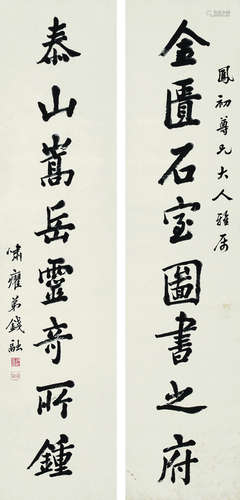 鳳初尊兄大人雅属
金匱石室圖書之府
泰山嵩岳靈奇所鍾
嘯雍弟錢融